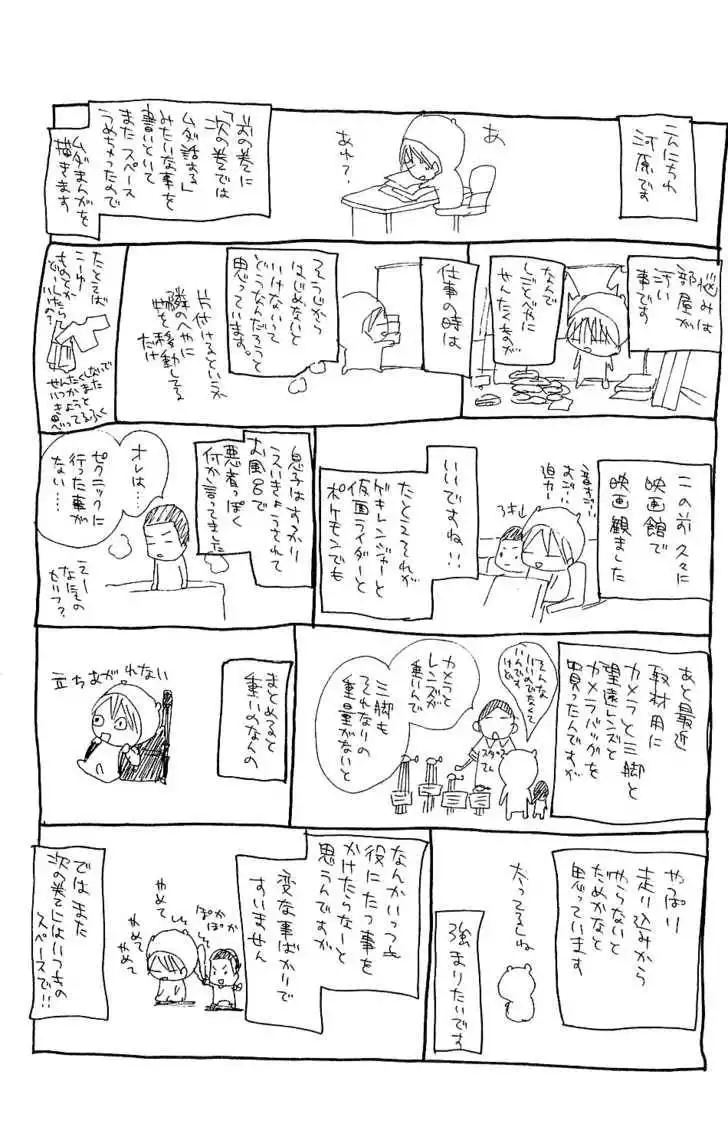 こんにちわ
河原です
あ
あれ?
前の巻に
「次の巻では
ムダ話する」
みたいな事を
書いといて
またスペース
うめちゃったので
ムダまんがを
描きます
悩みは
部屋が
汚い
事です
なんで
しごとべやに
せんたくものが
仕事の時は
そうじから
はじめないと
いけないって
どうなんだろうと
思っています。
片付けるというか
隣のへやに
物を移動してる
だけ
たとえば
こーゆー
ものとか
どーしたら
いい?
この前久々に
映画館で
映画観ました
音すごい…
おぉ…
迫力…
いいですね!!
たとえそれが
ゲキレンジャーと
仮面ライダーと
ポケモンでも
息子はすっかり
えいきょうされて
お風呂で
悪者っぽく
何か言ってました
オレは…
ピクニックに
行った事が
ない…
えー
なにその
せりフ?
あと最近
取材用に
カメラと三脚と
望遠レンズと
カメラバッグを
買ったんですが
そんな
いいのでなくて
いいんです
けど
スタッフ
さん
カメラと
レンズが
重いんで
三脚も
それなりの
重量がないと
まとめると
重いのなんの
立ちあがれない
やっぱり
走り込みから
やらないと
だめかなと
思っています
太ってるしね
強まりたいです
なんかいつも
役にたつ事を
かけたらなーと
思うんですが
変な事ばかりで
すいません
ぽかぽか
やめて
やめて
やめて
ではまた
次の巻にはいつもの
スペースで!!